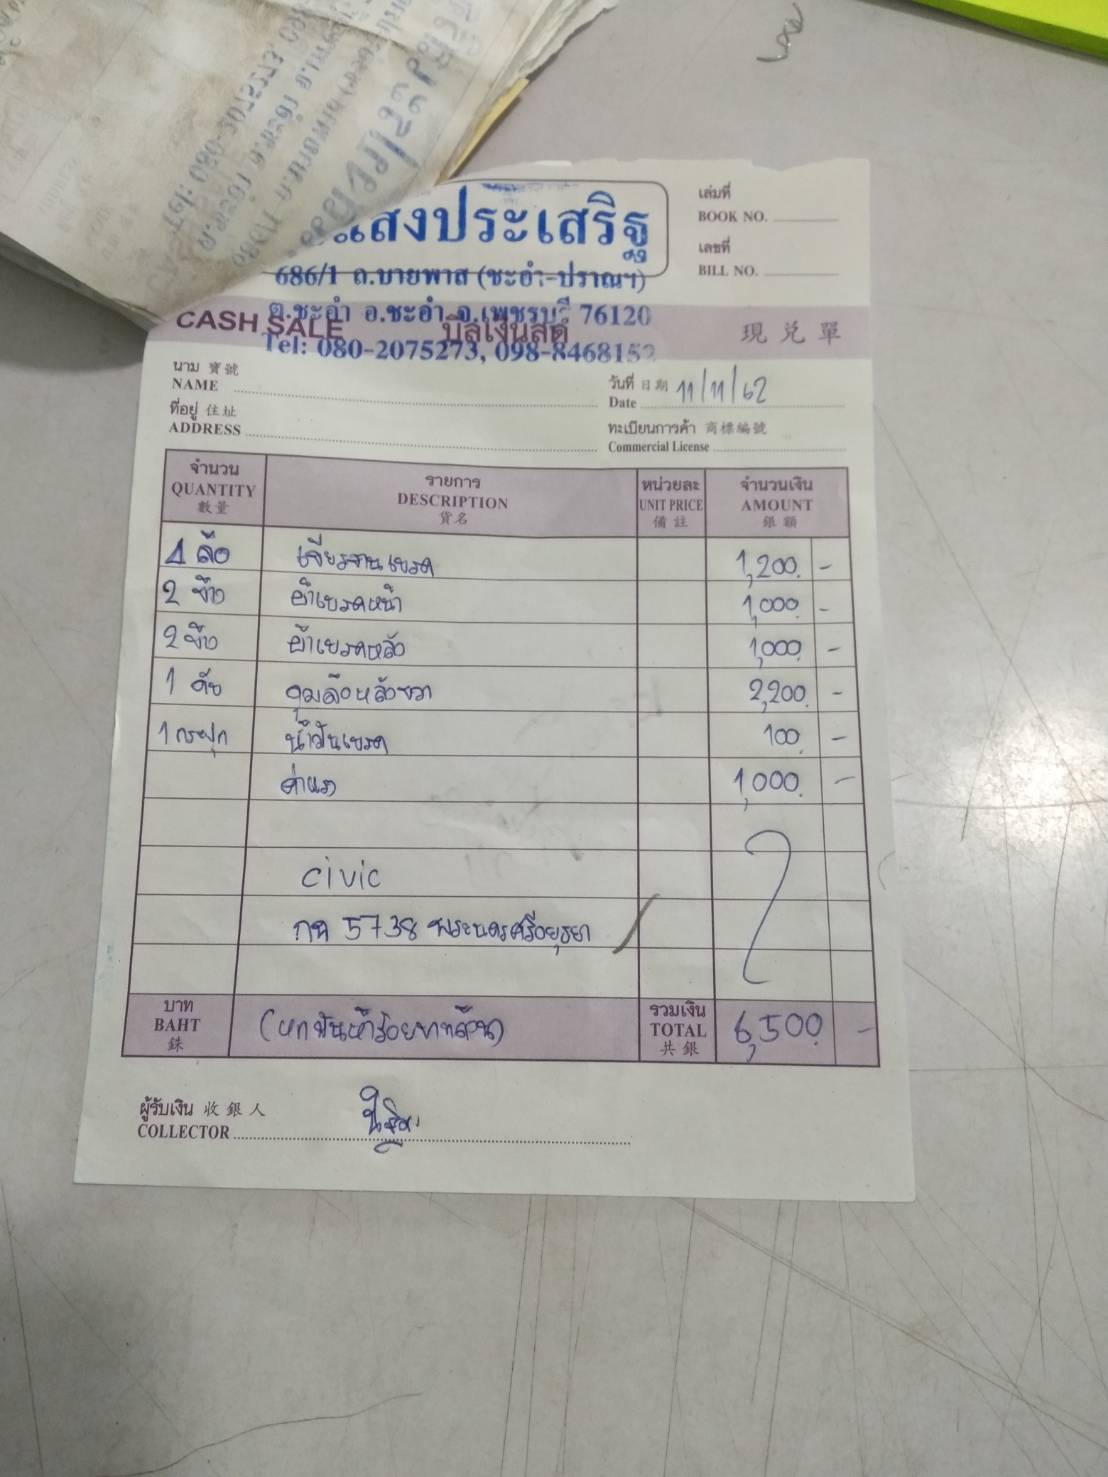 แสงประเสริฐ
686/1 ถ.บายพาส (ชะอำ-ปราณฯ)
ต.ชะอำ อ.ชะอำ จ.เพชรบุรี 76120
Tel: 080-2075273, 098-8468152
เล่มที่
BOOK NO.
เลขที่
BILL NO.
CASH SALE บิลเงินสด 現兌單
นาม 寶號
NAME
วันที่ 日期 11/11/62
Date
ที่อยู่ 住址
ADDRESS
ทะเบียนการค้า 商標編號
Commercial License
จำนวน รายการ หน่วยละ จำนวนเงิน
QUANTITY DESCRIPTION UNIT PRICE AMOUNT
數量 貨名 備註 銀額
4 ล้อ เจียรจานเบรค 1,200 -
2 ข้าง ผ้าเบรคหน้า 1,000 -
2 ข้าง ผ้าเบรคหลัง 1,000 -
1 ตับ ดุมล้อหลังขวา 2,200 -
1 กระปุก น้ำมันเบรค 100 -
ค่าแรง 1,000 -
civic
5738 พระนครศรีอยุธยา
บาท
BAHT (หกพันห้าร้อยบาทถ้วน)
銖
รวมเงิน
TOTAL 6,500 -
共銀
ผู้รับเงิน 收銀人
COLLECTOR